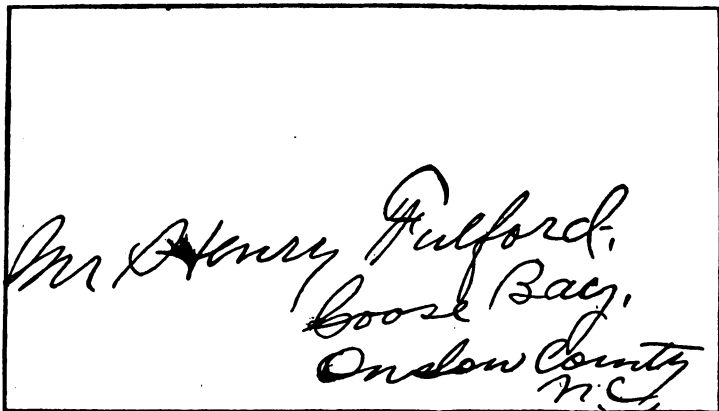 Mr Henry Fulford,
Goose Bay,
Onslow County
N.C.